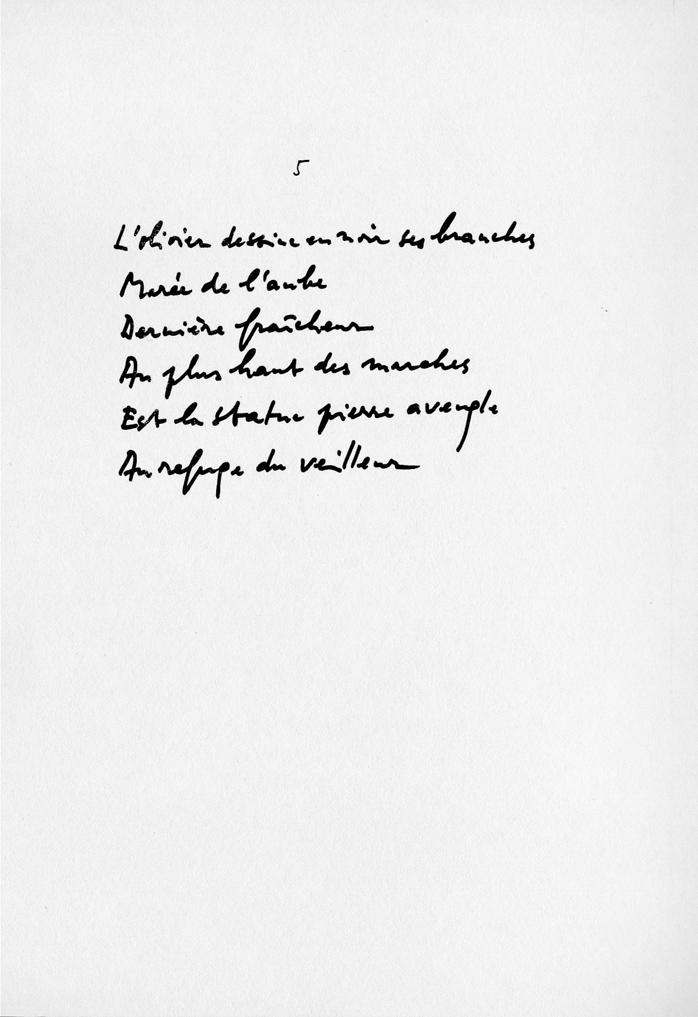 5
L'olivier dessine en noir ses branches
Marée de l'aube
Dernière fraîcheur
Au plus haut des marches
Est la statue pierre aveugle
Au refuge du veilleur